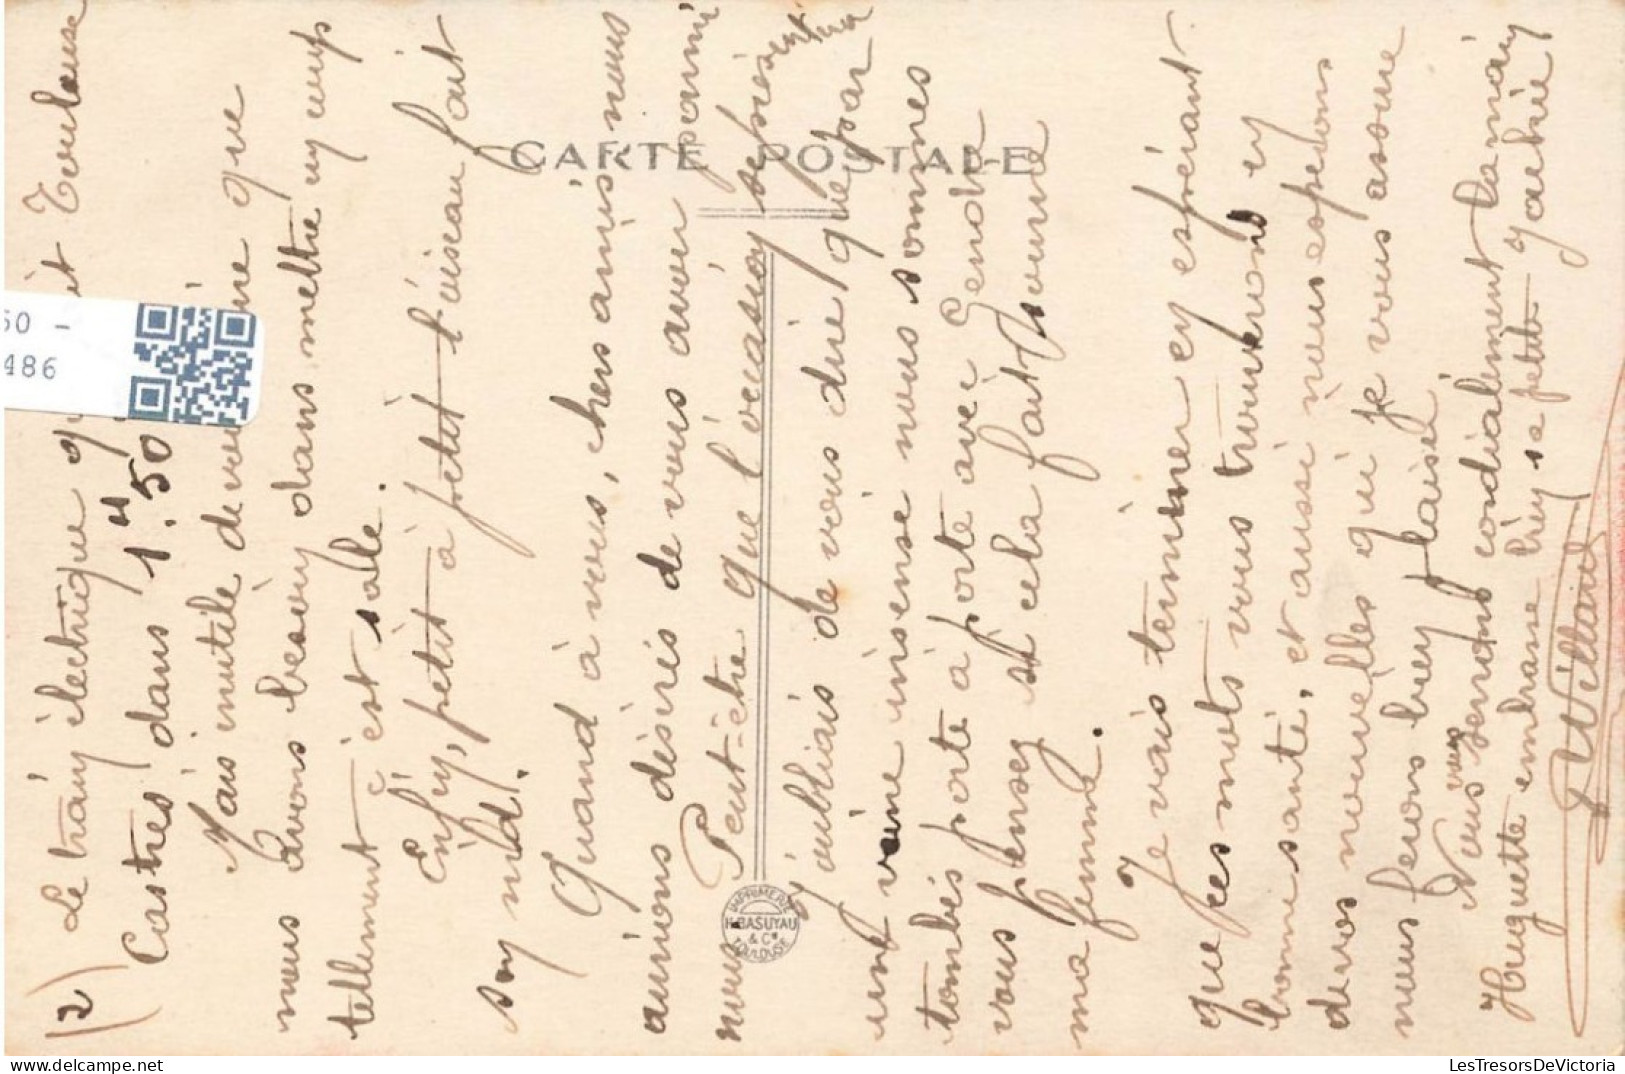 2)
Le train électrique Toulouse
Castres dans 1H.50
Mais inutile de que
nous avons besoin dans mettre un coup
tellement c'est sale.
Enfin, petit à petit l'oiseau fait
son nid.
Quand à vous, chers amis, nous
aurions désirés de vous avoir parmi
nous. Peut-être que l'occasion se présentera
J'oubliais de vous dire que par
une veine insensé nous sommes
tombés porte à porte avec Gendre
vous pensez si cela fait sourire
ma femme.
Je vais terminer en espérant
que ces mots vous trouverons en
bonne santé, et aussi nous espérons
de vos nouvelles qui je vous assure
nous ferons bien plaisir
Nous vous serrons cordialement la main
Huguette embrasse bien sa petite Gabrie
Villard
CARTE POSTALE
IMPRIMERIE
H. BASUYAU
& Cie
TOULOUSE
50 -
486
LesTresorsDeVictoria.com